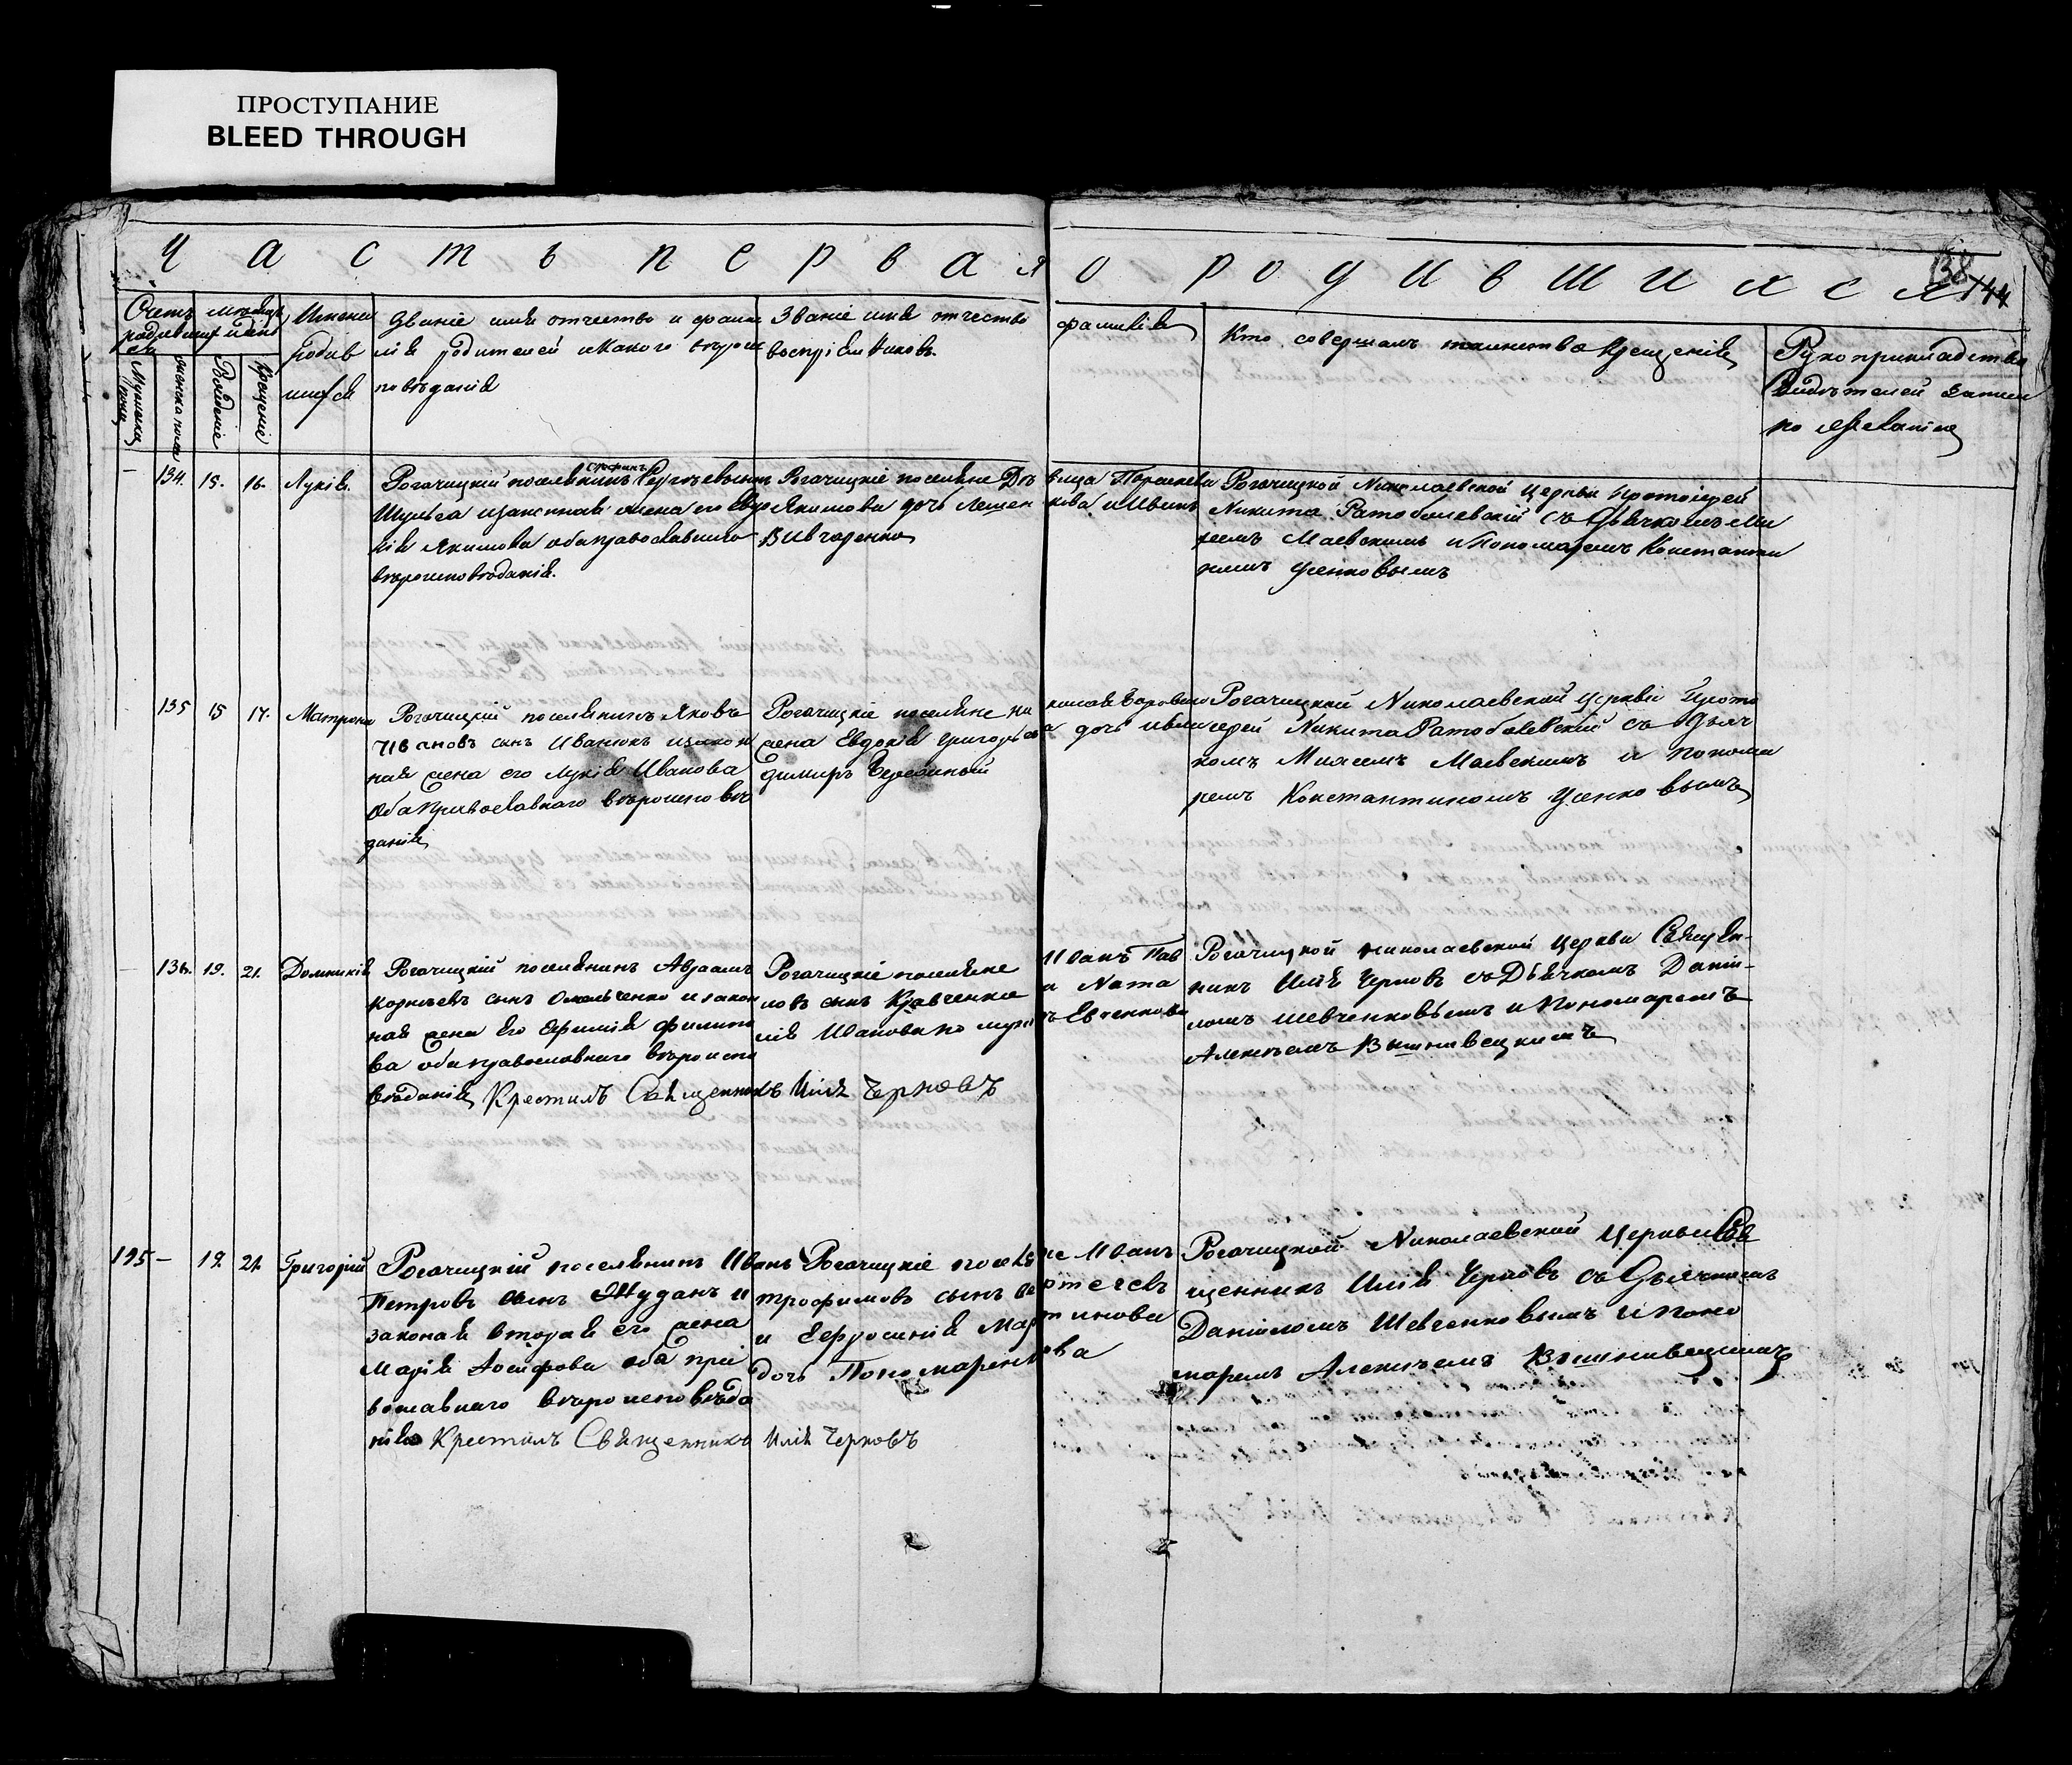 ПРОСТУПАНИЕ
BLEED THROUGH
Часть первая о родившихся
138 144
Счетъ родившихся
Мѣсяцъ и день
Мужеска пола
Женска пола
Рожденіе
Крещеніе
Имена родившихся
Званіе имя отчество и фами
лія родителей и какого вѣрои
повѣданія
Званіе имя отчество фамилія
воспріемниковъ.
Кто совершалъ таинство крещенія
Рукоприкладство
свидѣтелей записи
по желанію
— 134. 15. 16. Лукія.
Рогачицкій поселянинъ Стефанъ Сергѣевъ сынъ
Шульга и законная жена его Евдо
кія Якимова оба православнаго
вѣроисповѣданія.
Рогачицкіе поселяне Дѣвица Параскева
Якимова дочь
Вивчаренко
Рогачицкой Николаевской церкви протоіерей
Никита Ратоболевскій съ Дьячкомъ Ми
Маевскимъ и Пономаремъ Константи
номъ Усенковымъ
135 15 17. Матрона
Рогачицкій поселянинъ Яковъ
Ивановъ сынъ Иванюкъ и закон
ная жена его Лукія Иванова
оба православнаго вѣроисповѣ
данія
Рогачицкіе поселяне
жена Евдокія Григорьева дочь и Вла
димиръ
Рогачицкой Николаевской церкви Прото
іерей Никита Ратоболевскій съ Дьяч
комъ Маевскимъ и понома
ремъ Константиномъ Усенковымъ
— 136. 19. 21. Домникія
Рогачицкій поселянинъ Авраамъ
Корнѣевъ сынъ Омельченко и закон
ная жена его Ефимія Филипо
ва оба православнаго вѣроиспо
вѣданія Крестилъ Священникъ Илія Черновъ
Рогачицкіе поселяне Иванъ Пав
ловъ сынъ Кравченко и Ната
лія Иванова по мужѣ Евченкова
Рогачицкой николаевской церкви Священ-
никъ Илія Черновъ съ Дьячкомъ Даніи-
ломъ Шевченковымъ и Пономаремъ
Алексѣемъ Вышнивецкимъ
— 19. 21. Григорій
Рогачицкій поселянинъ Иванъ
Петровъ сынъ Жуданъ и
законая вторая его жена
Марія Іосифова оба пра
вославнаго вѣроисповѣда
нія Крестилъ Священникъ Илія Черновъ
Рогачицкіе поселяне Иванъ
трофимовъ сынъ
и Ефросинія Мартинова
дочь Пономаренкова
Рогачицкой Николаевской церкви Свя
щенникъ Илія Черновъ съ Дьячкомъ
Даніиломъ Шевченковымъ и поно
маремъ Алексѣемъ Вышнивецкимъ